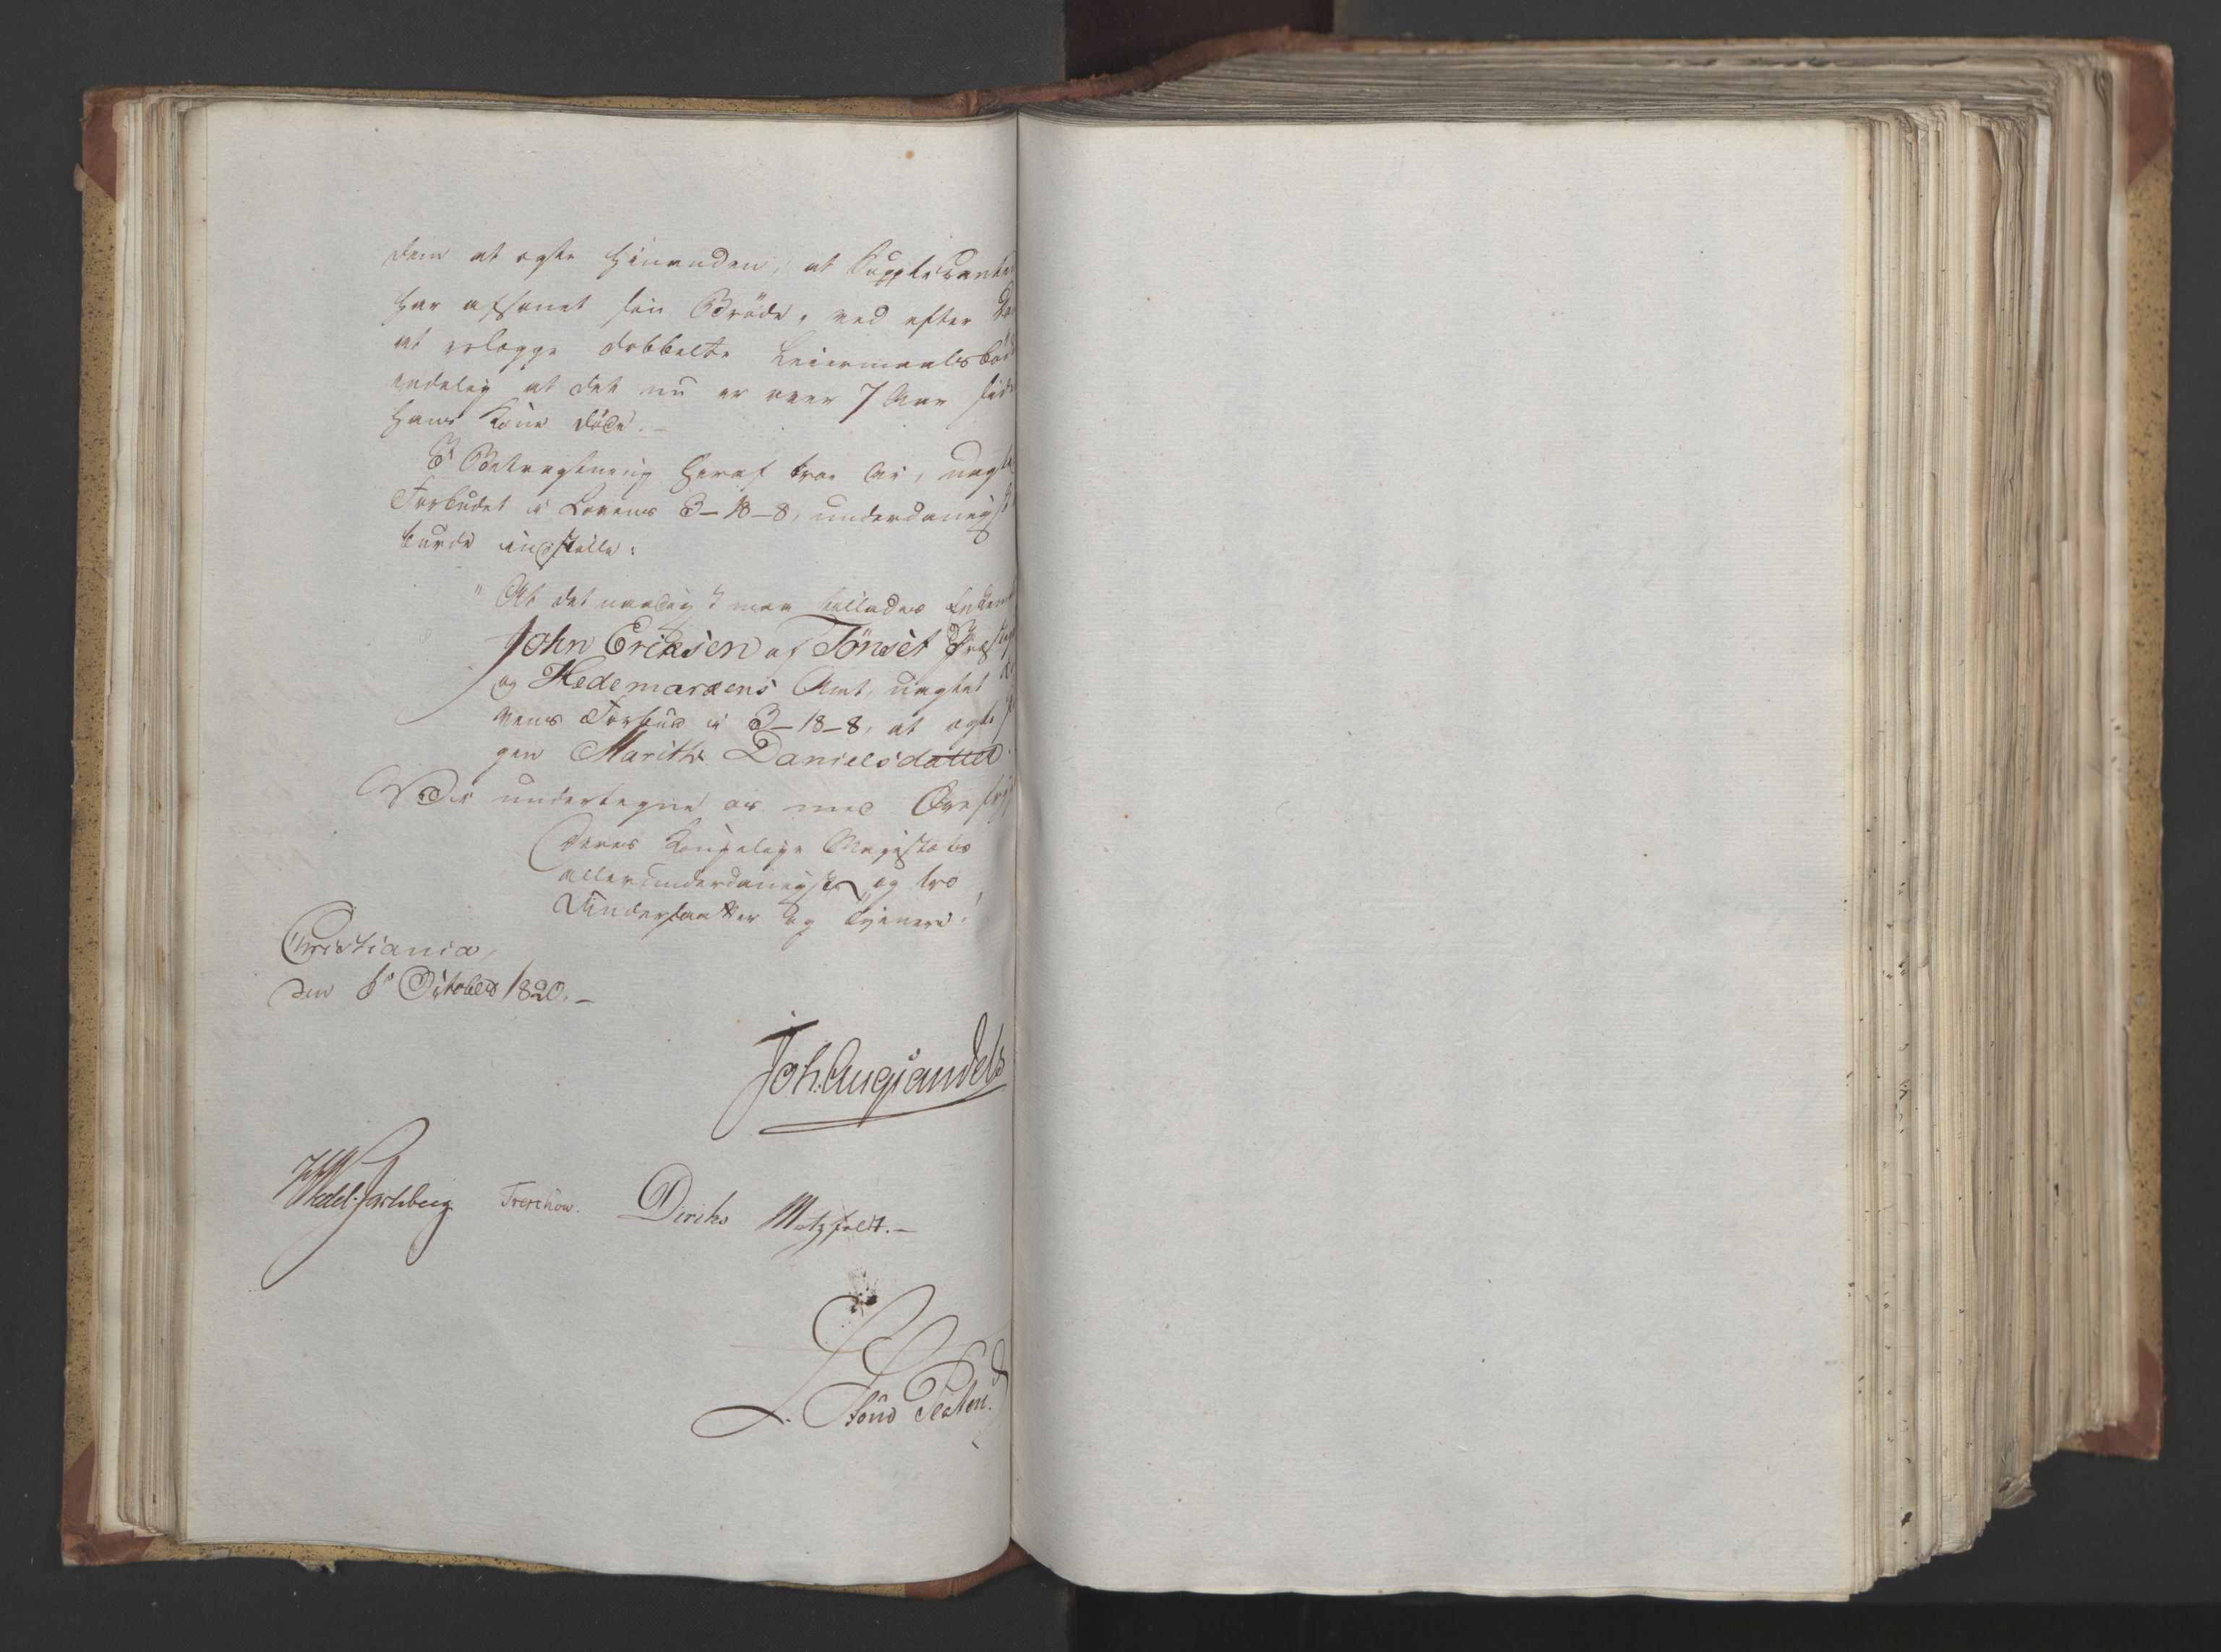 dem at ægte hinanden, at Supplicanten
har afsonet sin Bröde, ved efter
at erlægge dobbelte Leiermaalsböd
endelig at det nu er over 7 Aar sid
hans Kone döde. –
I Betragtning heraf troe Vi, uagtet
Forbudet i Lovens 3–18–8, underdanigst
burde indstille:
"At det naadigst maa tillades Enkem
John Eriksen af Tönset Præsteg
og Hedemarkens Amt, uagtet Lo
vens Forbud i 3–18–8, at ægte Pi
gen Marithe Danielsdatter.
Vi undertegne os med Ærefrygt
Deres Kongelige Majestæts
allerunderdanigste og tro
Undersaatter og Tjenere!
Christiania,
den October 1820. –
Joh. Aug Sandels
HWedel-Jarlsberg Treschow. Diriks Motzfeldt. –
L. Stoud Platou.